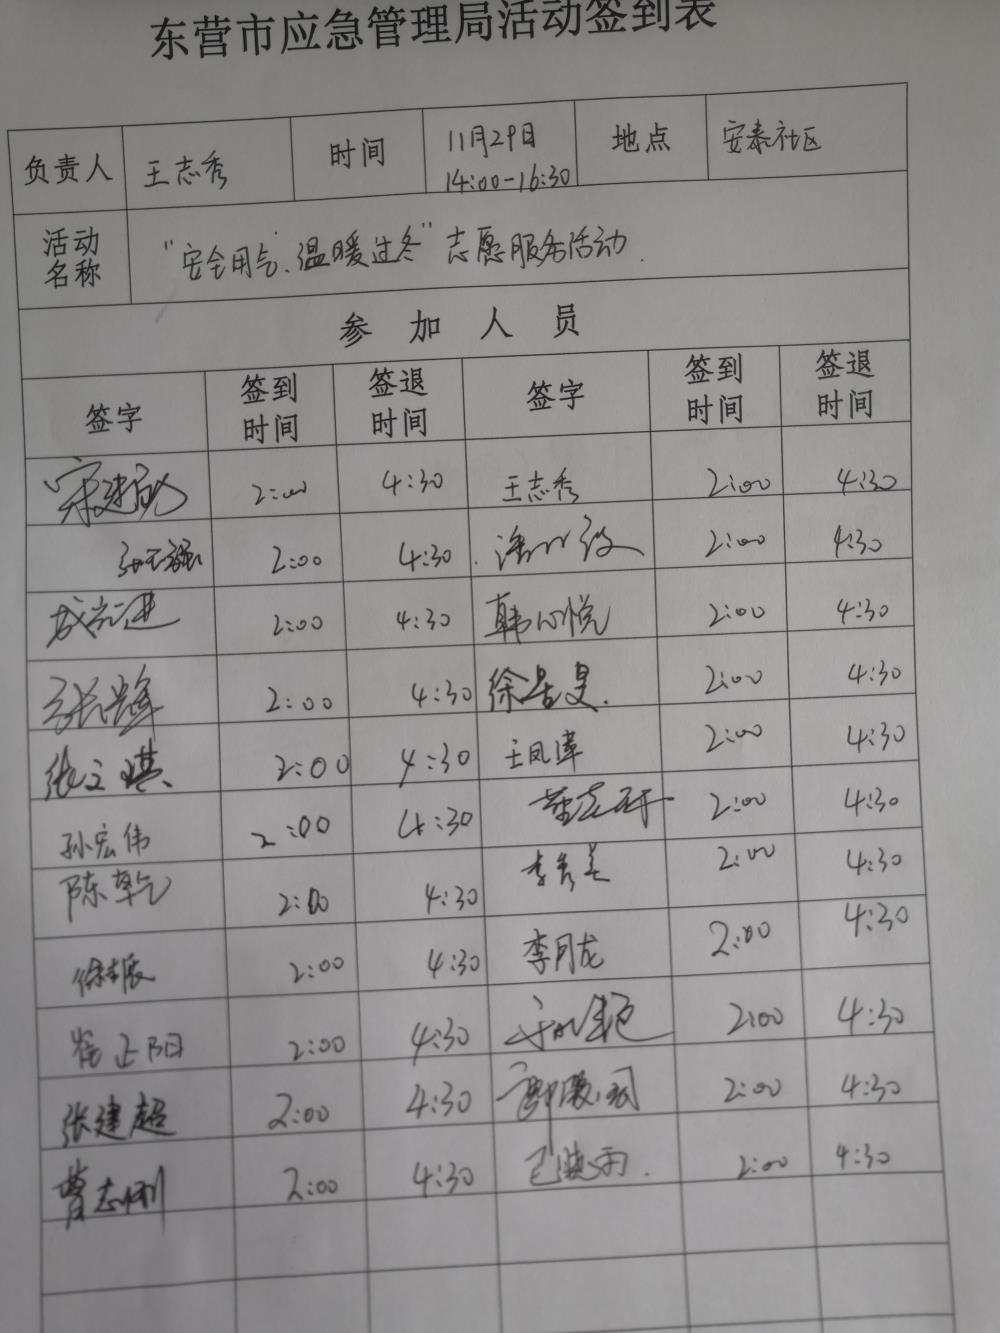 东营市应急管理局活动签到表
负责人 王志秀 时间 11月29日 14:00-16:30 地点 安泰社区
活动名称 "安全用气、温暖过冬"志愿服务活动.
参加人员
签字 签到时间 签退时间 签字 签到时间 签退时间
2:00 4:30 王志秀 2:00 4:30
2:00 4:30 2:00 4:30
2:00 4:30 韩心悦 2:00 4:30
2:00 4:30 2:00 4:30
2:00 4:30 2:00 4:30
孙宏伟 2:00 4:30 2:00 4:30
2:00 4:30 李秀美 2:00 4:30
2:00 4:30 李月龙 2:00 4:30
崔正阳 2:00 4:30 2:00 4:30
张建超 2:00 4:30 2:00 4:30
曹志刚 2:00 4:30 2:00 4:30